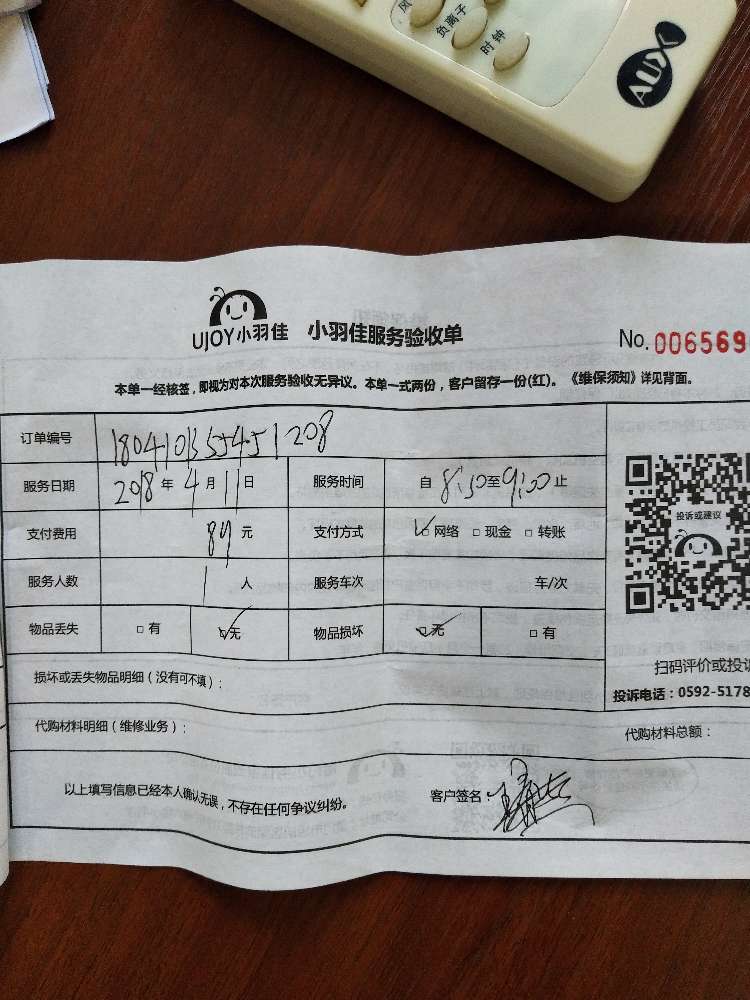 风
负离子
时钟
AUX
UJOY小羽佳 小羽佳服务验收单 No. 006569
本单一经核签，即视为对本次服务验收无异议。本单一式两份，客户留存一份(红)。《维保须知》详见背面。
订单编号 180410355451208
服务日期 2018年4月11日 服务时间 自8:30至9:00止
支付费用 89元 支付方式 ☑网络 □现金 □转账
服务人数 1人 服务车次 车/次
物品丢失 □有 ☑无 物品损坏 ☑无 □有
投诉或建议
扫码评价或投诉
投诉电话：0592-5178
损坏或丢失物品明细（没有可不填）：
代购材料明细（维修业务）： 代购材料总额：
以上填写信息已经本人确认无误，不存在任何争议纠纷。 客户签名：